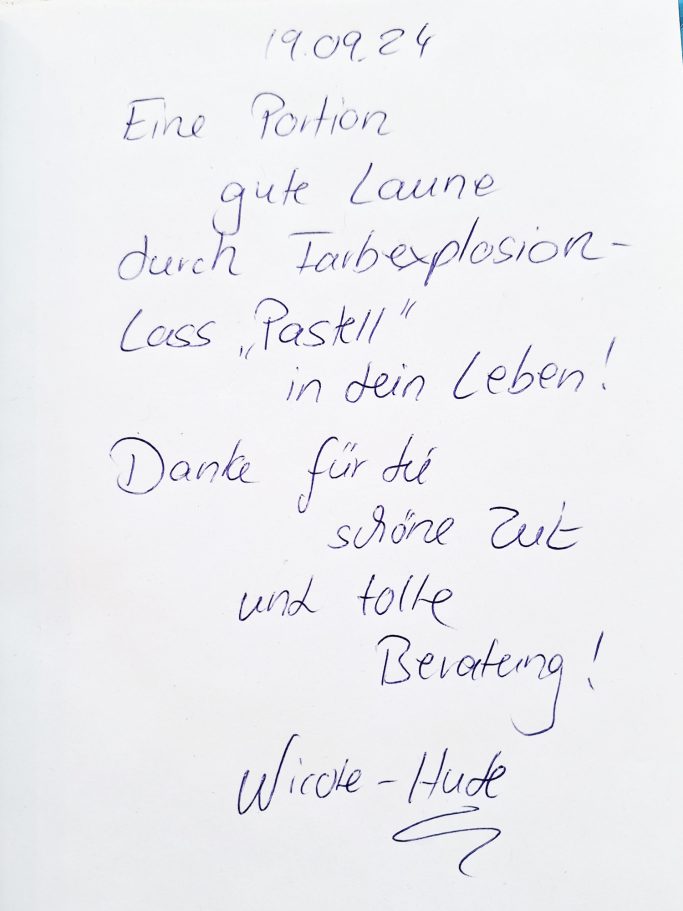 19.09.24
Eine Portion
gute Laune
durch Farbexplosion-
Lass „Pastell“
in dein Leben!
Danke für die
schöne Zeit
und tolle
Beratung!